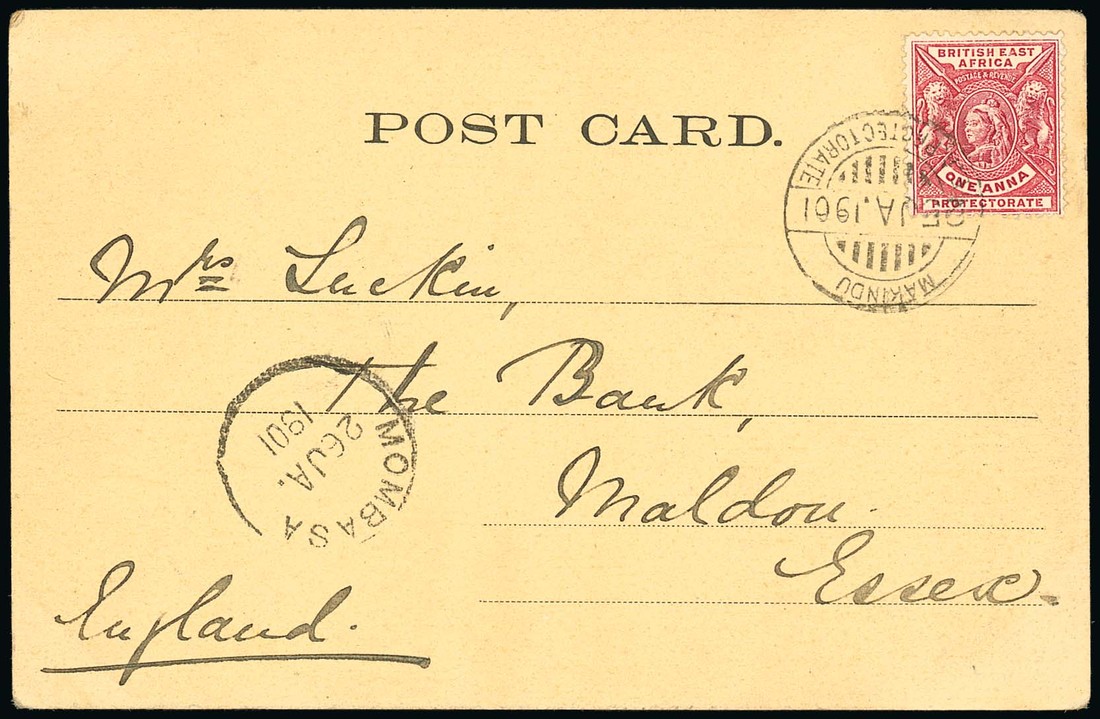 BRITISH EAST
AFRICA
POSTAGE & REVENUE
ONE ANNA
PROTECTORATE
POST CARD.
PROTECTORATE
JA.1901
MAKINDU
Mrs Luckin,
The Bank,
Maldon.
Essex.
England.
MOMBASA
26 JA.
1901